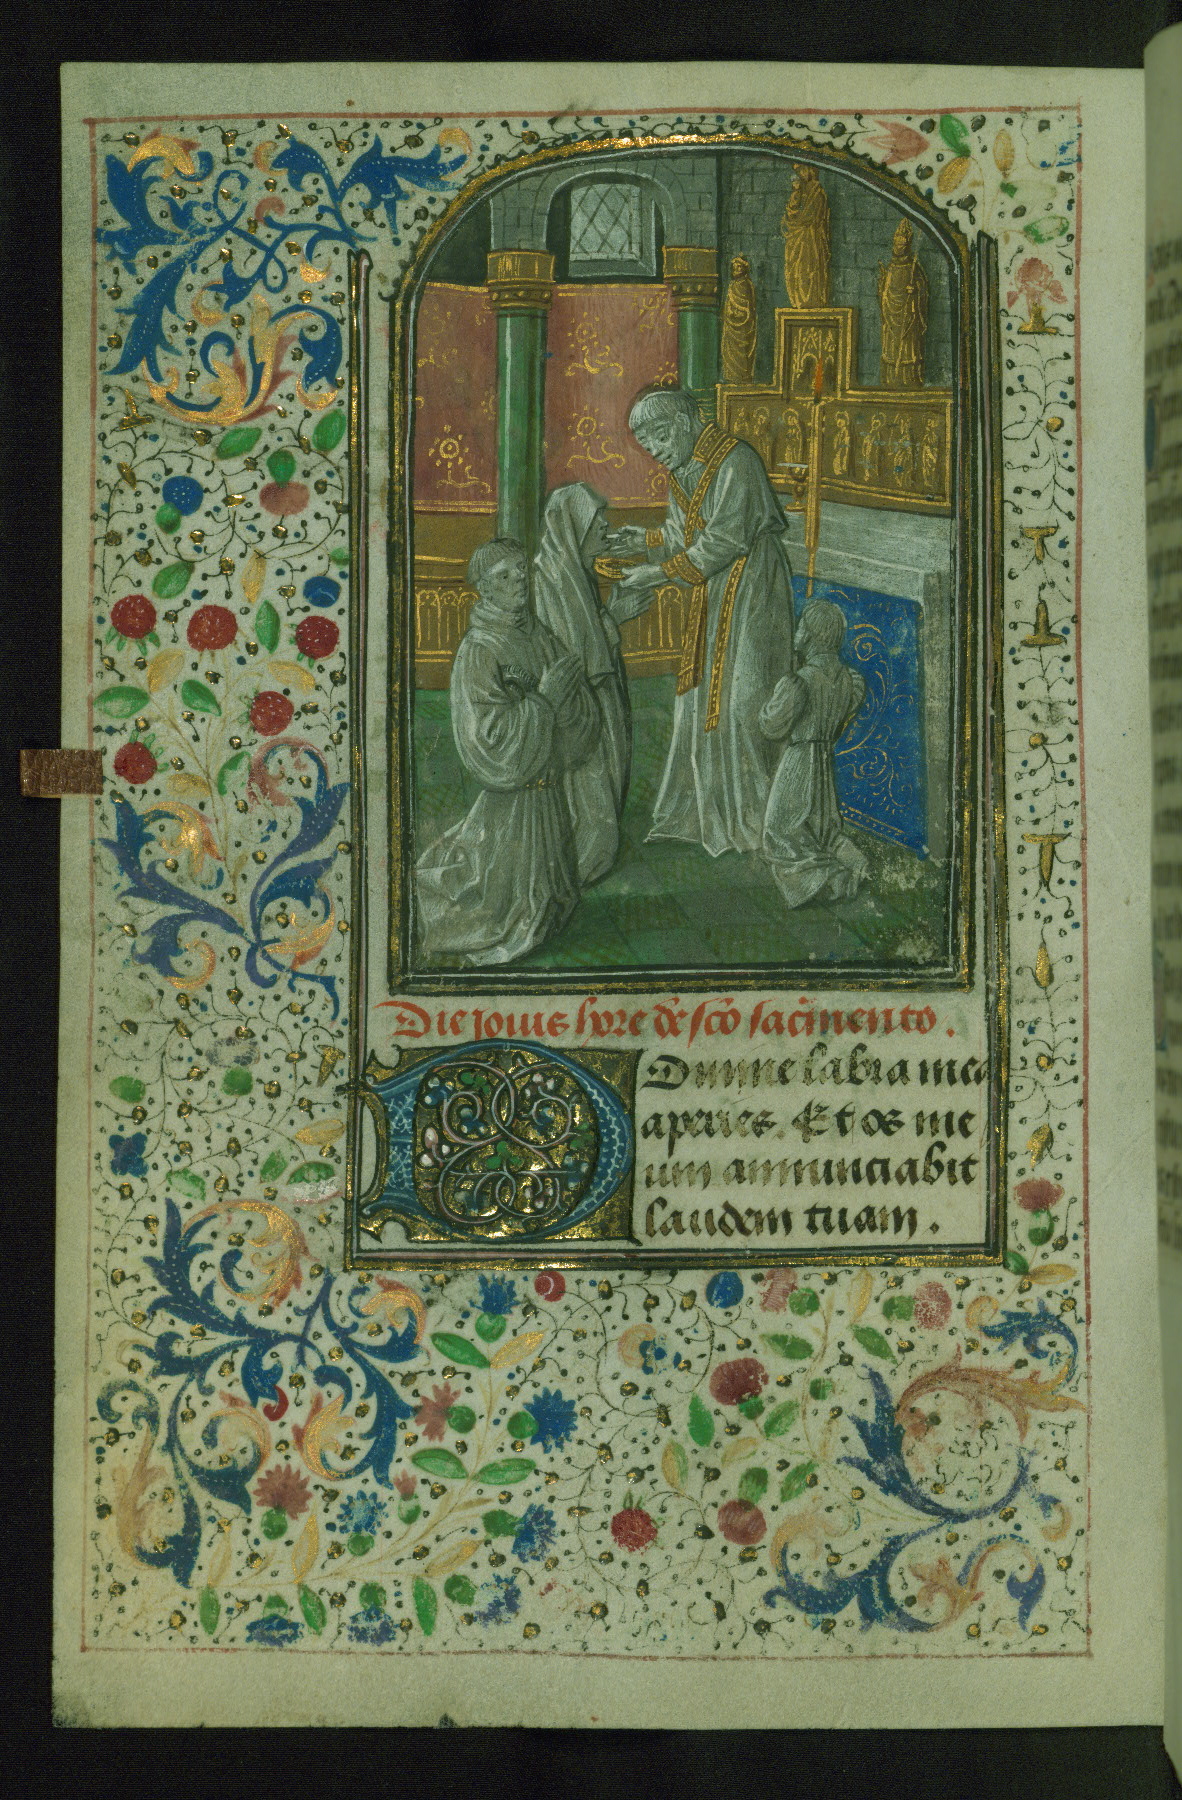 Die iouis hore de sc̃o sac̃mento .
Domine labia mea
aperies. Et os me
um annunciabit
laudem tuam .